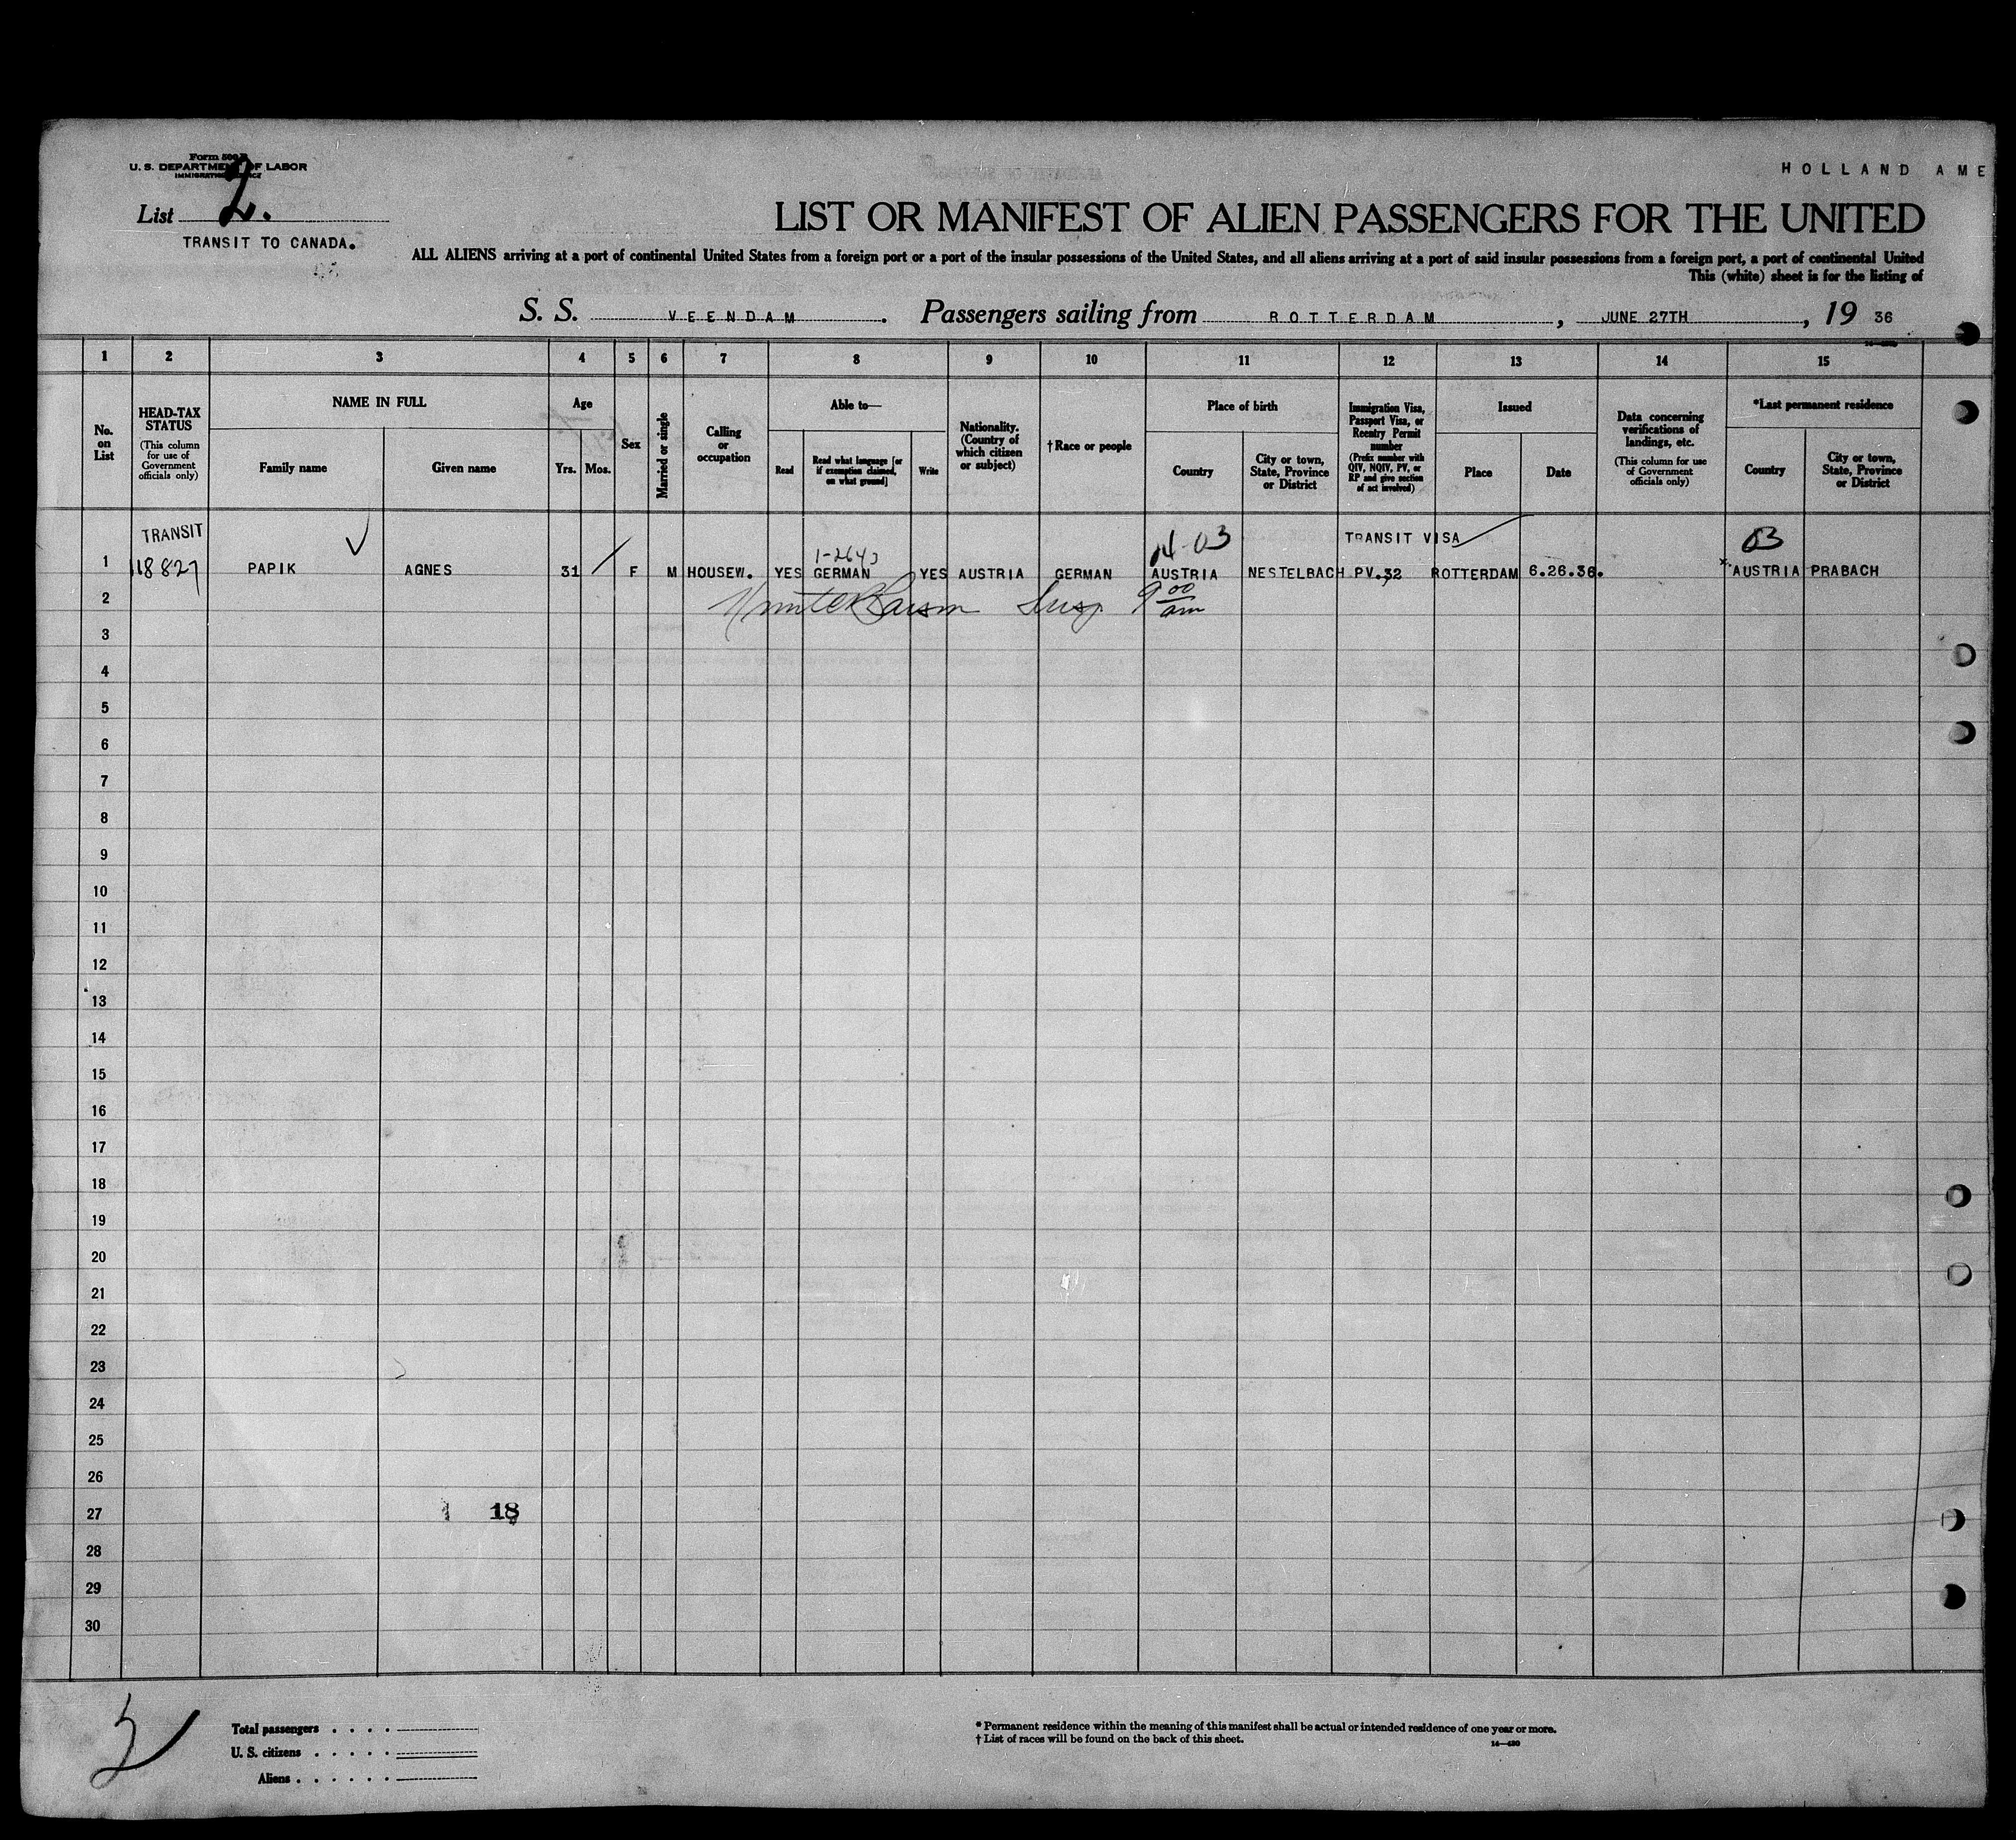 Form 500 B
U. S. DEPARTMENT OF LABOR
IMMIGRATION SERVICE
HOLLAND AME
List 2.
TRANSIT TO CANADA.
LIST OR MANIFEST OF ALIEN PASSENGERS FOR THE UNITED
ALL ALIENS arriving at a port of continental United States from a foreign port or a port of the insular possessions of the United States, and all aliens arriving at a port of said insular possessions from a foreign port, a port of continental United
This (white) sheet is for the listing of
S. S. VEENDAM . Passengers sailing from ROTTERDAM , JUNE 27TH , 19 36
1 2 3 4 5 6 7 8 9 10 11 12 13 14 15
No. on List
HEAD-TAX STATUS
(This column for use of Government officials only)
NAME IN FULL
Family name
Given name
Age
Yrs.
Mos.
Sex
Married or single
Calling or occupation
Able to—
Read
Read what language [or if exemption claimed, on what ground]
Write
Nationality. (Country of which citizen or subject)
†Race or people
Place of birth
Country
City or town, State, Province or District
Immigration Visa, Passport Visa, or Reentry Permit number
(Prefix number with QIV, NQIV, PV, or RP and give section of act involved)
Issued
Place
Date
Data concerning verifications of landings, etc.
(This column for use of Government officials only)
*Last permanent residence
Country
City or town, State, Province or District
TRANSIT TRANSIT VISA 03
1 118827 PAPIK AGNES 31 F M HOUSEW. YES GERMAN YES AUSTRIA GERMAN AUSTRIA NESTELBACH PV.32 ROTTERDAM 6.26.36. x AUSTRIA PRABACH
2 9 00 am
3
4
5
6
7
8
9
10
11
12
13
14
15
16
17
18
19
20
21
22
23
24
25
26
27 18
28
29
30
Total passengers . . . .
U. S. citizens . . . . .
Aliens . . . . . .
* Permanent residence within the meaning of this manifest shall be actual or intended residence of one year or more.
† List of races will be found on the back of this sheet.
14—430